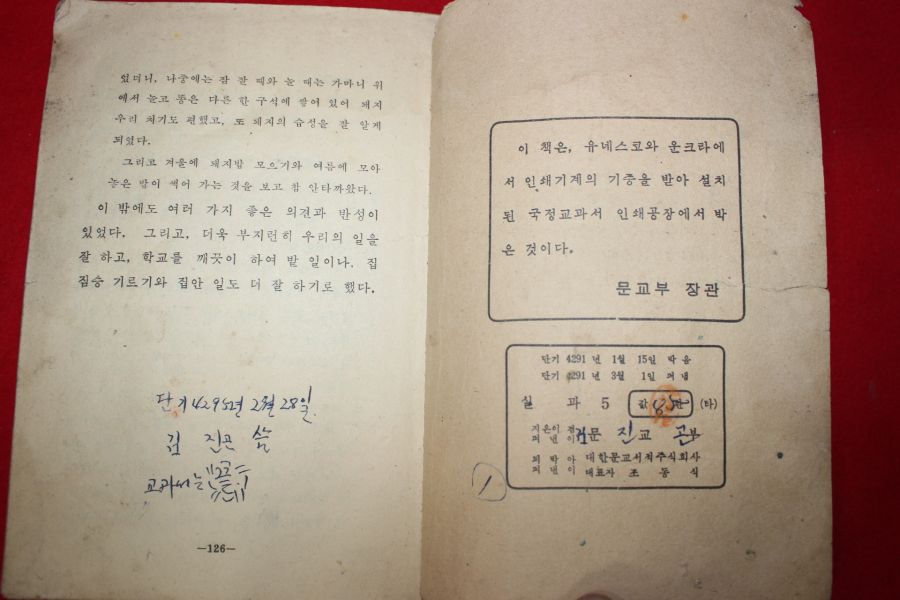 었더니, 나중에는 잠 잘 때와 놀 때는 가마니 위
에서 놀고 똥은 다른 한 구석에 쌓여 있어 돼지
우리 치기도 편했고, 또 돼지의 습성을 잘 알게
되었다.
그리고 겨울에 돼지밥 모으기와 여름에 모아
놓은 밥이 썩어 가는 것을 보고 참 안타까왔다.
이 밖에도 여러 가지 좋은 의견과 반성이
있었다. 그리고, 더욱 부지런히 우리의 일을
잘 하고, 학교를 깨끗이 하여 밭 일이나, 집
짐승 기르기와 집안 일도 더 잘 하기로 했다.
단기 4295년 2월 28일
김 진곤 씀
교과서는
—126—
이 책은, 유네스코와 운크라에
서 인쇄기계의 기증을 받아 설치
된 국정교과서 인쇄공장에서 박
은 것이다.
문교부 장관
단기 4291년 1월 15일 박음
단기 4291년 3월 1일 펴냄
실 과 5 값 (타)
지은이 겸
펴낸이 문 교 부
김 진 곤
되박아
펴낸이 대한문교서적주식회사
대표자 조 동 식
1